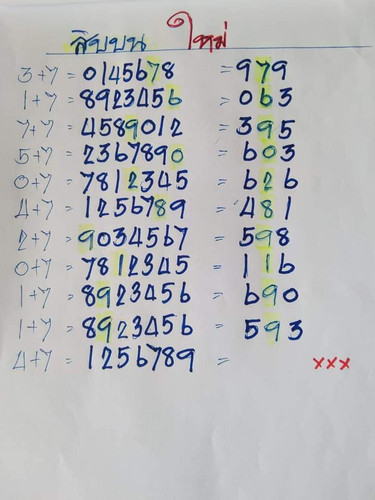 สิบบน ใหม่
3+7 = 0145678 = 979
1+7 = 8923456 = 063
7+7 = 4589012 = 395
5+7 = 2367890 = 603
0+7 = 7812345 = 626
4+7 = 1256789 = 481
2+7 = 9034567 = 598
0+7 = 7812345 = 116
1+7 = 8923456 = 690
1+7 = 8923456 = 593
4+7 = 1256789 = xxx